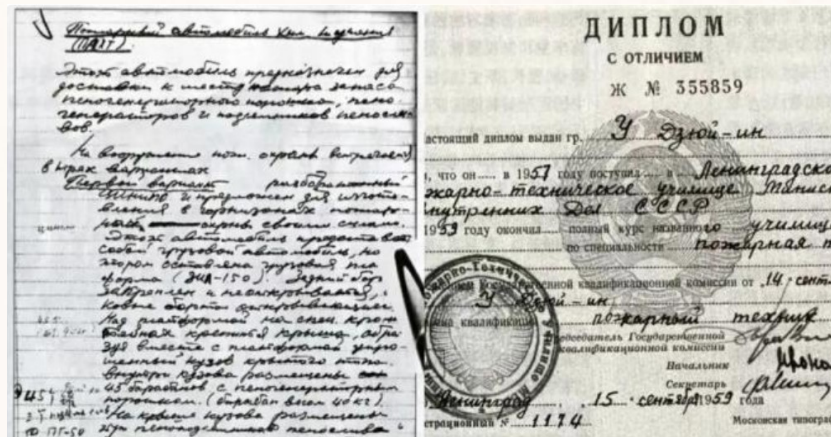 Пожарный автомобиль хим. тушения
Этот автомобиль предназначен для
доставки к месту пожара запаса
пеногенераторного порошка, пено
генераторов и подъемников пеносли
вов.
На вооружении пож. охраны встречается
в вариантах
Первый вариант
и предложен для изгото
вления в гарнизонах пожар
охраны своими силами.
Этот автомобиль представляет
собой грузовой автомобиль, на
котором оставлена грузовая плат
форма (ЗИЛ-150). Задний борт
закреплен и неоткрывается,
боковые борта открывающиеся.
Над платформой на спец. крон
крыша, обра
зуя вместе с платформой упро
щенный кузов крытого типа.
Внутри кузова размещены
45 барабанов с пеногенераторным
порошком. (барабан весом 40 кг).
На крыше кузова размещены
пеноподъемника пенослива
ДИПЛОМ
С ОТЛИЧИЕМ
Ж № 355859
астоящий диплом выдан гр. У Дзюй-ин
, что он в 1957 году поступил в Ленинградско
жарно-техническое училище Минист
нутренних Дел СССР
1959 году окончил полный курс названного училищ
по специальности пожарная т
ием Государственной квалификационной комиссии от 14 сент
У Дзюй-ин
ена квалификация пожарный техник
редседатель Государственной
квалификационной комиссии
Начальник
Секретарь
Ленинград, 15 сентября 1959 года
страционный № 1174
Московская типогра